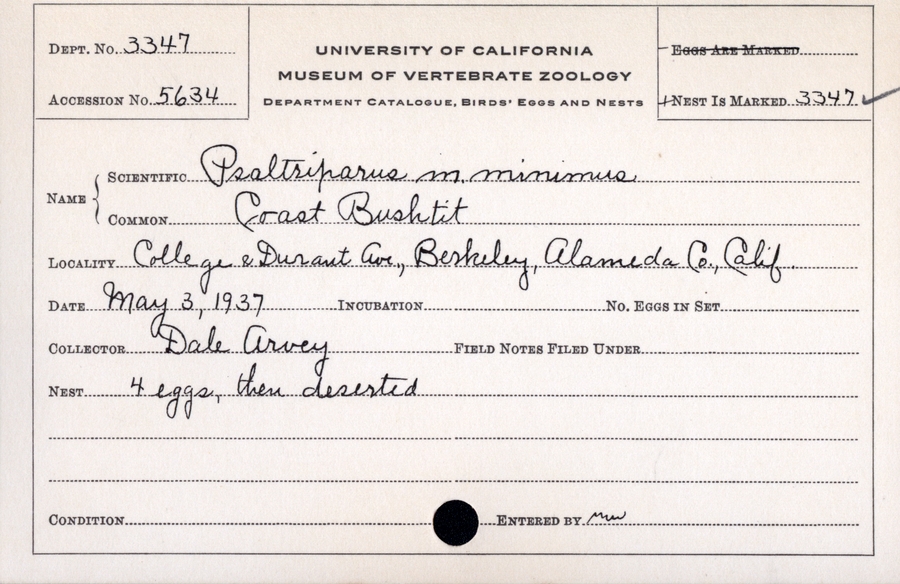 DEPT. NO. 3347
ACCESSION NO. 5634
UNIVERSITY OF CALIFORNIA
MUSEUM OF VERTEBRATE ZOOLOGY
DEPARTMENT CATALOGUE, BIRDS' EGGS AND NESTS
EGGS ARE MARKED
NEST IS MARKED 3347
NAME
SCIENTIFIC Psaltriparus m. minimus
COMMON Coast Bushtit
LOCALITY College & Durant Ave., Berkeley, Alameda Co., Calif.
DATE May 3, 1937 INCUBATION NO. EGGS IN SET
COLLECTOR Dale Arvey FIELD NOTES FILED UNDER
NEST 4 eggs, then deserted
CONDITION ENTERED BY